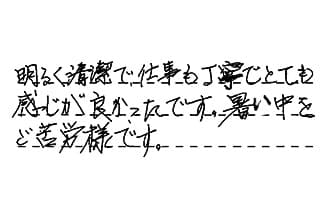 明るく清潔で仕事も丁寧でとても
感じが良かったです。暑い中を
ご苦労様です。